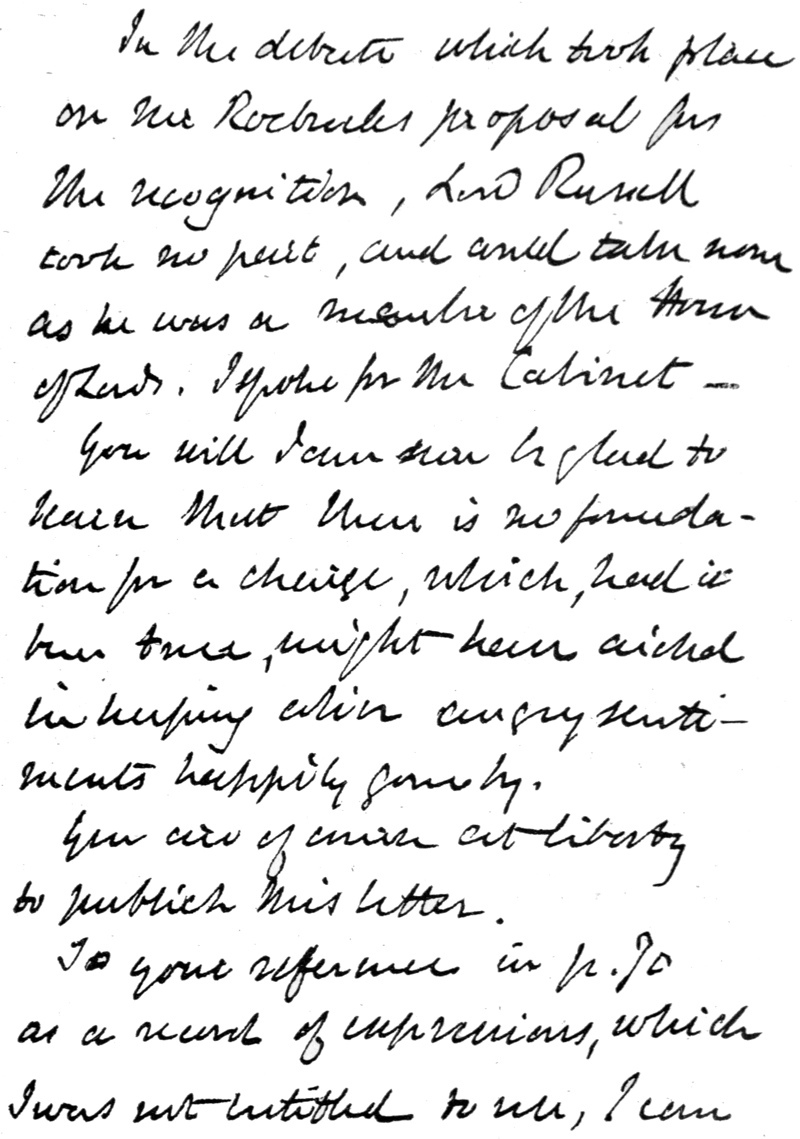 In the debate which took place
on Mr Roebucks proposal for
the recognition, Lord Russell
took no part, and could take none
as he was a member of the House
of Lords. I spoke for the Cabinet —
You will I am sure be glad to
learn that there is no founda-
tion for a charge, which, had it
been true, might have aided
in keeping alive angry senti-
ments happily gone by.
You are of course at liberty
to publish this letter.
To your reference in p. 70
as a record of expressions, which
I was not entitled to use, I can